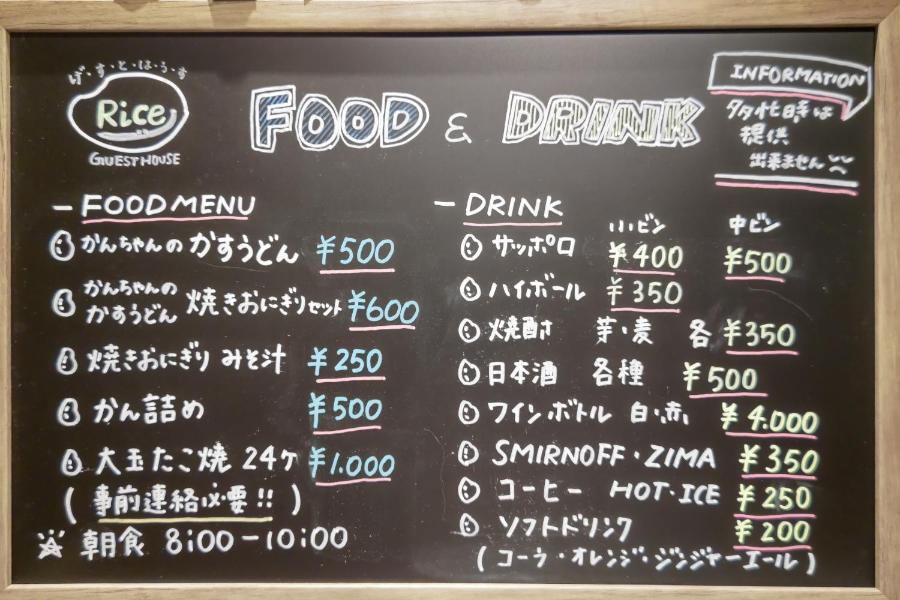 げ・す・と・は・う・す
Rice
GUEST HOUSE
FOOD & DRINK
INFORMATION
夕夕忙時は
提供
出来ません
– FOOD MENU
かんちゃんの かすうどん ¥500
かんちゃんの
かすうどん 焼きおにぎりセット ¥600
焼きおにぎり みそ汁 ¥250
かん詰め ¥500
大玉たこ焼 24ケ ¥1.000
(事前連絡必要!!)
朝食 8:00-10:00
– DRINK
小ビン 中ビン
サッポロ ¥400 ¥500
ハイボール ¥350
焼酎 芋・麦 各¥350
日本酒 各種 ¥500
ワインボトル 白・赤 ¥4.000
SMIRNOFF・ZIMA ¥350
コーヒー HOT・ICE ¥250
ソフトドリンク ¥200
(コーラ・オレンジ・ジンジャーエール)